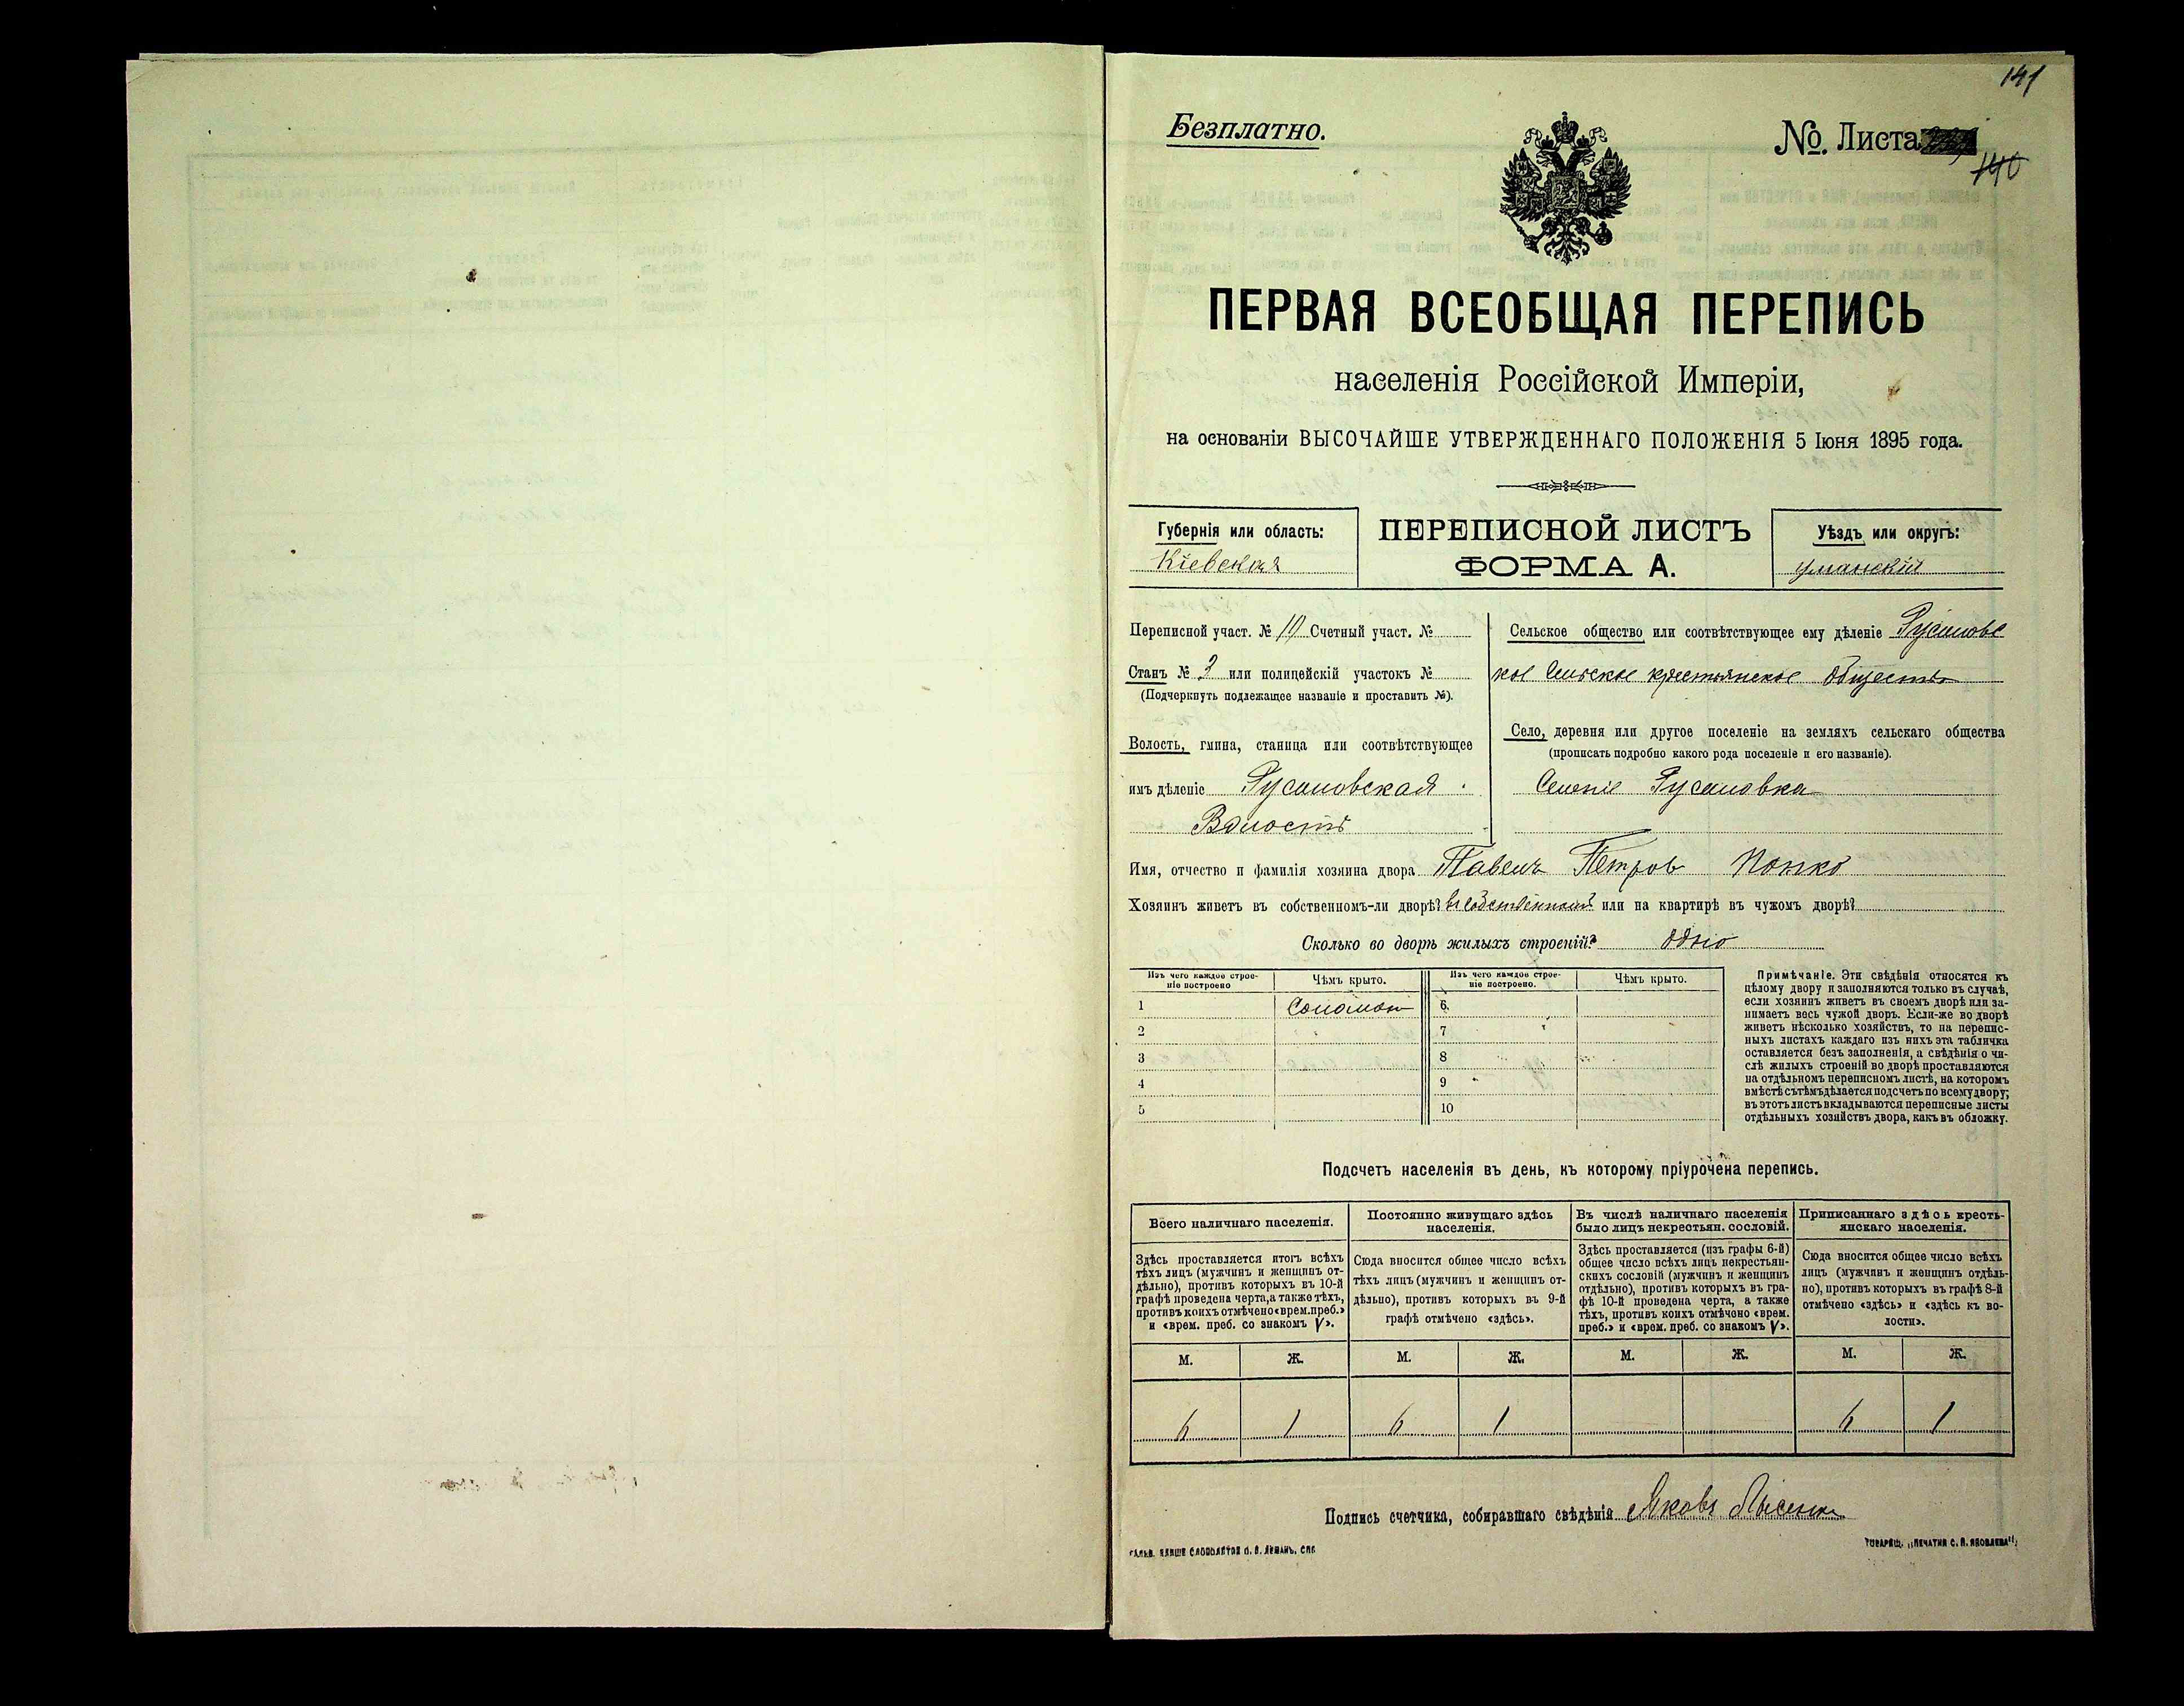 141
Безплатно.
№. Листа
140
ПЕРВАЯ ВСЕОБЩАЯ ПЕРЕПИСЬ
населенія Россійской Имперіи,
на основаніи ВЫСОЧАЙШЕ УТВЕРЖДЕННАГО ПОЛОЖЕНІЯ 5 Іюня 1895 года.
Губернія или область:
Кіевская
ПЕРЕПИСНОЙ ЛИСТЪ
ФОРМА А.
Уѣздъ или округъ:
Уманскій
Переписной участ. № Счетный участ. №
Станъ № 3 или полицейскій участокъ №
(Подчеркнуть подлежащее названіе и проставить №).
Волость, гмина, станица или соотвѣтствующее
имъ дѣленіе Русаловская
Волость
Сельское общество или соотвѣтствующее ему дѣленіе Русаловс
кое Сельское крестьянское общество
Село, деревня или другое поселеніе на земляхъ сельскаго общества
(прописать подробно какого рода поселеніе и его названіе).
Селеніе Русаловка
Имя, отчество и фамилія хозяина двора Павелъ Петров Попко
Хозяинъ живетъ въ собственномъ-ли дворѣ? въ собственномъ или на квартирѣ въ чужомъ дворѣ?
Сколько во дворѣ жилыхъ строеній? одно
Изъ чего каждое строе-
ніе построено
Чѣмъ крыто.
Изъ чего каждое строе-
ніе построено.
Чѣмъ крыто.
1 Соломою 6.
2 7
3 8
4 9
5 10
Примѣчаніе. Эти свѣдѣнія относятся къ
цѣлому двору и заполняются только въ случаѣ,
если хозяинъ живетъ въ своемъ дворѣ или за-
нимаетъ весь чужой дворъ. Если-же во дворѣ
живетъ нѣсколько хозяйствъ, то на перепис-
ныхъ листахъ каждаго изъ нихъ эта табличка
оставляется безъ заполненія, а свѣдѣнія о чи-
слѣ жилыхъ строеній во дворѣ проставляются
на отдѣльномъ переписномъ листѣ, на которомъ
вмѣстѣ съ тѣмъ дѣлается подсчетъ по всему двору;
въ этотъ листъ вкладываются переписные листы
отдѣльныхъ хозяйствъ двора, какъ въ обложку.
Подсчетъ населенія въ день, къ которому пріурочена перепись.
Всего наличнаго населенія.
Здѣсь проставляется итогъ всѣхъ
тѣхъ лицъ (мужчинъ и женщинъ от-
дѣльно), противъ которыхъ въ 10-й
графѣ проведена черта, а также тѣхъ,
противъ коихъ отмѣчено «врем. преб.»
и «врем. преб. со знакомъ V».
Постоянно живущаго здѣсь
населенія.
Сюда вносится общее число всѣхъ
тѣхъ лицъ (мужчинъ и женщинъ от-
дѣльно), противъ которыхъ въ 9-й
графѣ отмѣчено «здѣсь».
Въ числѣ наличнаго населенія
было лицъ некрестьян. сословій.
Здѣсь проставляется (изъ графы 6-й)
общее число всѣхъ лицъ некрестьян-
скихъ сословій (мужчинъ и женщинъ
отдѣльно), противъ которыхъ въ гра-
фѣ 10-й проведена черта, а также
тѣхъ, противъ коихъ отмѣчено «врем.
преб.» и «врем. преб. со знакомъ V».
Приписаннаго здѣсь кресть-
янскаго населенія.
Сюда вносится общее число всѣхъ
лицъ (мужчинъ и женщинъ отдѣль-
но), противъ которыхъ въ графѣ 8-й
отмѣчено «здѣсь» и «здѣсь къ во-
лости».
М. Ж. М. Ж. М. Ж. М. Ж.
6 1 6 1 6 1
Подпись счетчика, собиравшаго свѣдѣнія Яковъ
ТОВАРИЩ. „ПЕЧАТНЯ С. П. ЯКОВЛЕВА".